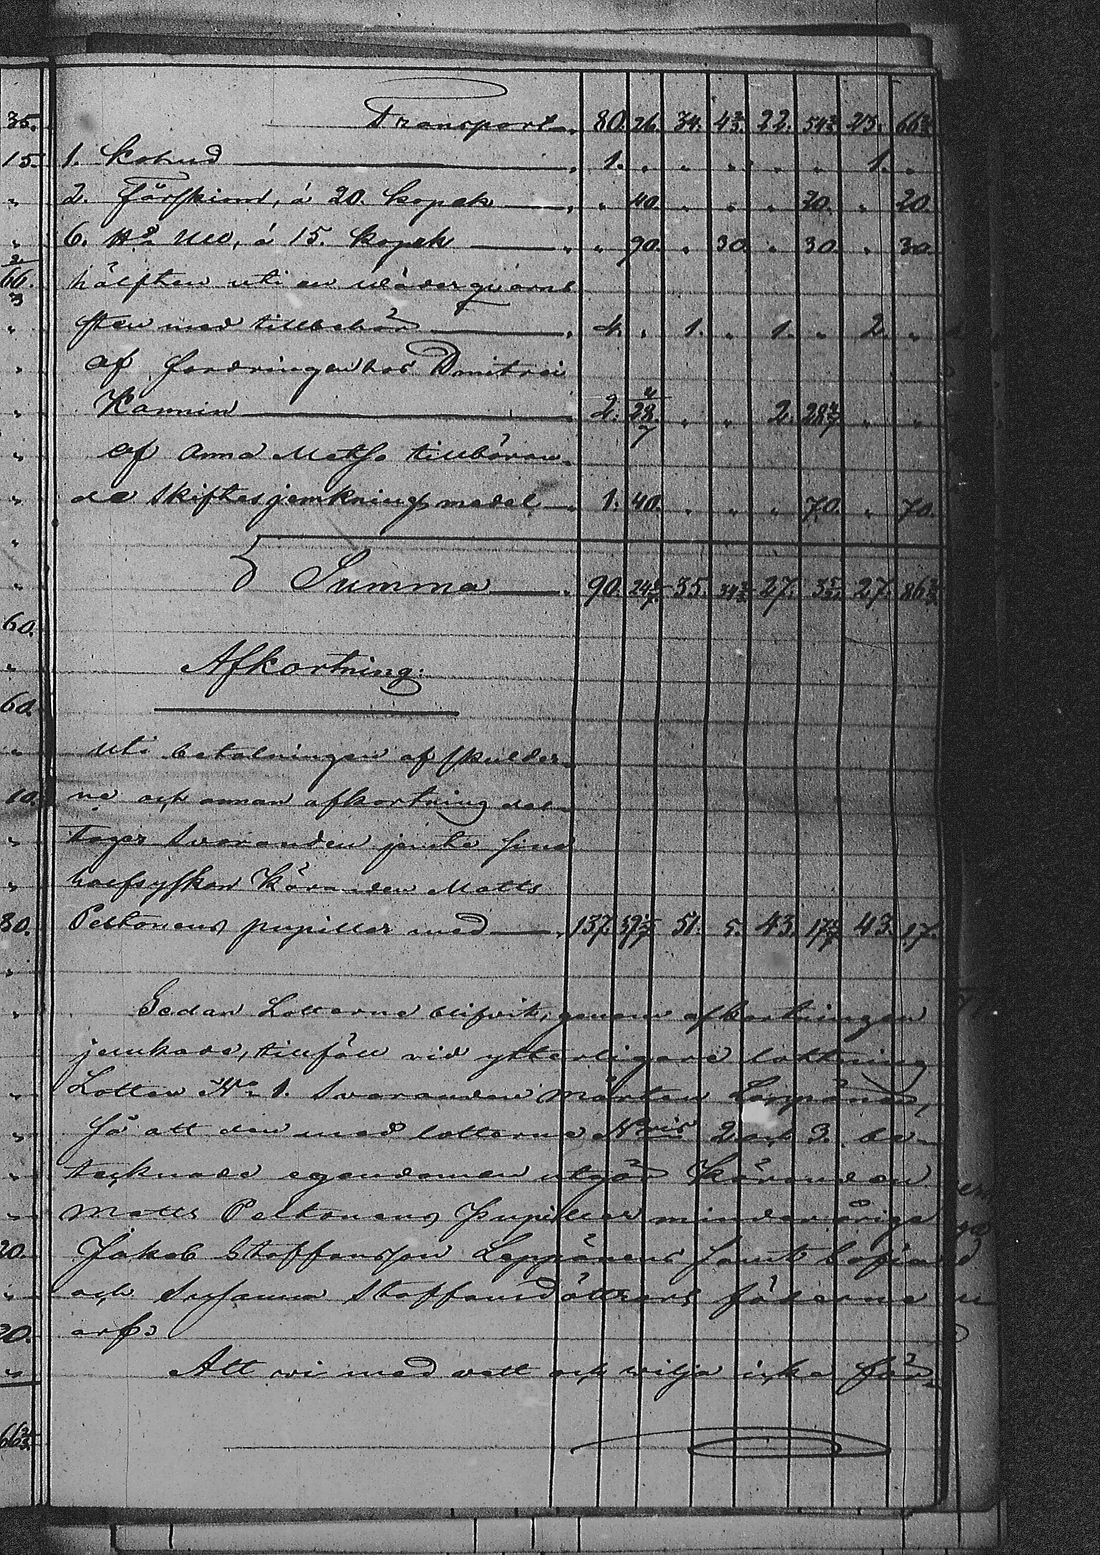 35. Transport 80. 26. 34. 4 2/3 22. 54 2/3 23. 66 2/3
15. 1. Kohud 1. „ „ „ „ „ 1. „
„ 2. Fårskinn, á 20. kopek „ 40. „ „ „ 20. „ 20.
„ 6. ℔ Ull, á 15. kopek „ 90. „ 30. „ 30. „ 30.
66 2/3 hälften uti en väderqvarns
„ sten med tillbehör 4. „ 1. „ 1. „ 2. „
„ af fordringen hos Dmitrei
„ Hannin 2. 28 4/7 „ „ 2. 28 4/7 „ „
„ af Anna Matsd tillböran-
„ de skiftesjemknings medel 1. 40. „ „ „ 70. „ 70.
„
„ Summa 90. 35. 34 2/3 27. 27. 86 2/3
60.
„ Afkortning:
60.
„ Uti betalningen af skulder-
10. ne och annan afkortning del-
„ tager Svaranden jemte sina
„ halfsyskon Käranden Matts
80. Peltonens pupiller med 137. 51. 5. 43. 43. 17.
„
„ Sedan Lotterne blifvit, genom afkortningen
„ jemkade, tillföll vid ytterligare lottning
„ Lotten No 1. Svaranden Mårten Leppänen,
„ så att den med lotterne Nris 2 och 3. be-
„ tecknade egendomen utgör Käranden
„ Matts Peltonens Pupiller minderårige
20. Jakob Staffansson Leppänens samt Sofia
„ och Susanna Staffansdöttrars fäderne
20. arf.
„ Att vi med vett och vilja icke för-
66 2/3